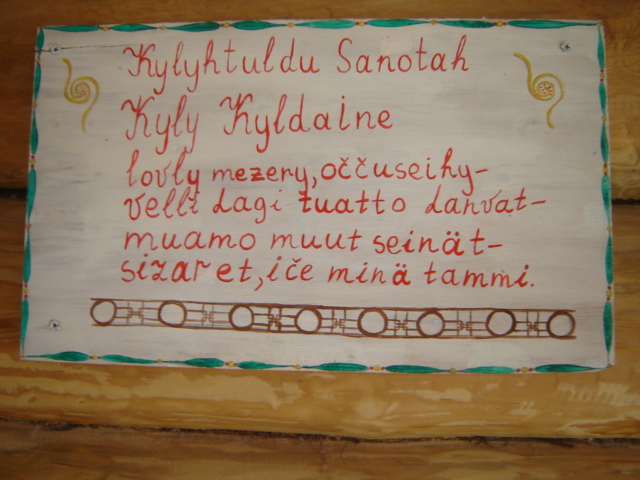 Kylyhtuldu Sanotah
Kyly Kyldaine
lovly mezery, oččuseihy-
velli dagi tuatto danvat-
muamo muut seinät-
sizaret, iče minä tammi.